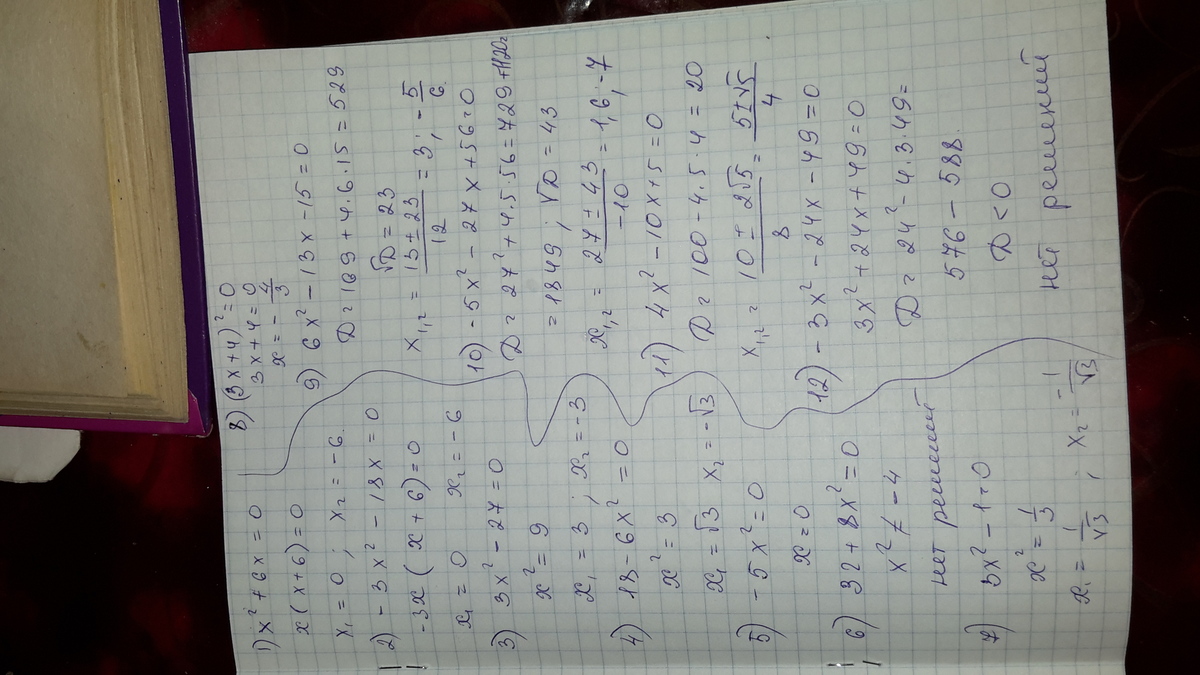 1) x² + 6x = 0
x(x+6) = 0
x₁ = 0 ; x₂ = -6.
2) -3x² - 18x = 0
-3x(x+6) = 0
x₁ = 0 x₂ = -6
3) 3x² - 27 = 0
x² = 9
x₁ = 3 ; x₂ = -3
4) 18 - 6x² = 0
x² = 3
x₁ = √3 x₂ = -√3
5) -5x² = 0
x = 0
6) 32 + 8x² = 0
x² ≠ -4
нет решений
7) 3x² - 1 = 0
x² = 1/3
x₁ = 1/√3 ; x₂ = -1/√3
8) (3x+4)² = 0
3x+4 = 0
x = -4/3
9) 6x² - 13x - 15 = 0
D = 169 + 4·6·15 = 529
√D = 23
x₁,₂ = (13 ± 23)/12 = 3 ; -5/6
10) -5x² - 27x + 56 = 0
D = 27² + 4·5·56 = 729 + 1120 =
= 1849 ; √D = 43
x₁,₂ = (27 ± 43)/-10 = 1,6 ; -7
11) 4x² - 10x + 5 = 0
D = 100 - 4·5·4 = 20
x₁,₂ = (10 ± 2√5)/8 = (5 ± √5)/4 .
12) -3x² - 24x - 49 = 0
3x² + 24x + 49 = 0
D = 24² - 4·3·49 =
576 - 588.
D < 0
нет решений